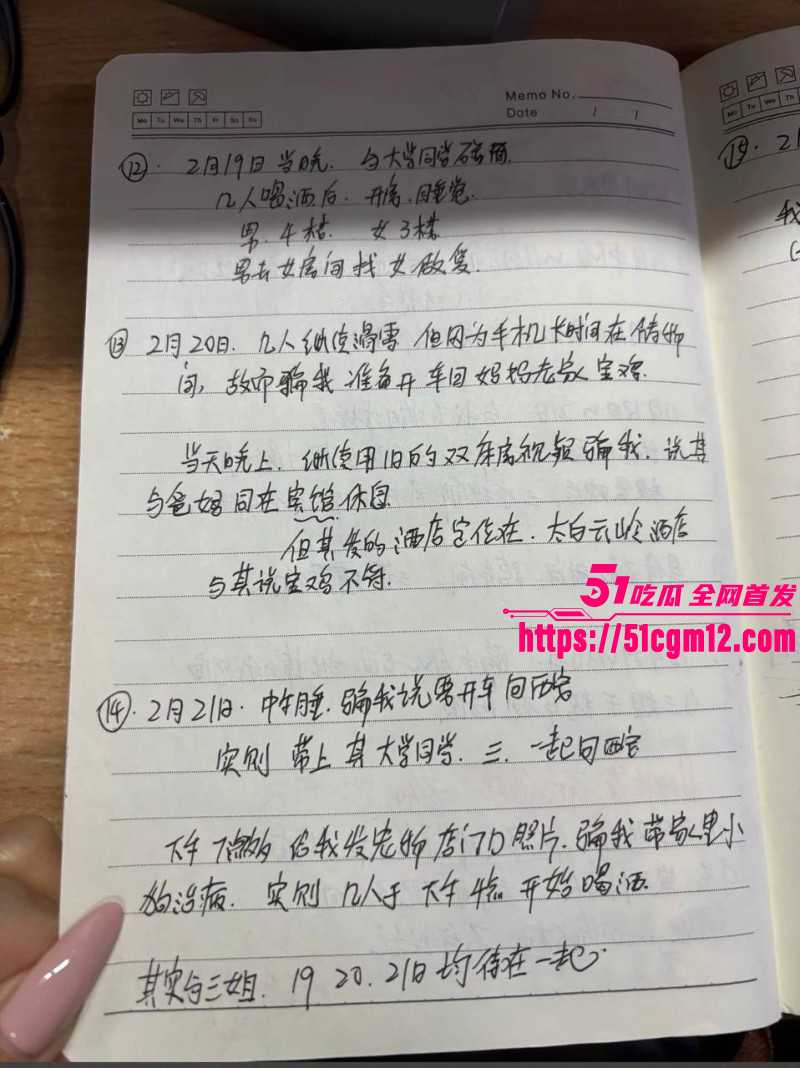 Memo No.
Date / /
Mo Tu We Th Fr Sa Su
⑫. 2月19日 当晚. 与大学同学碰面.
几人喝酒后. 开房. 睡觉.
男. 4楼. 女 3楼
男去女房间找女做爱.
⑬ 2月20日. 几人继续滑雪 但因为手机长时间在储物
间, 故而骗我 准备开车回妈妈老家 宝鸡.
当天晚上. 继续用旧的双床房视频骗我. 说其
与爸妈同在宾馆休息
但其发的酒店定位在. 太白云岭酒店
与其说宝鸡不符.
51吃瓜 全网首发
https://51cgm12.com
⑭. 2月21日. 中午睡. 骗我说要开车回西安
实则 带上 其大学同学. 三. 一起回西安
下午 给我发宠物店门口照片. 骗我带家里小
狗治病. 实则 几人于 下午4点 开始喝酒.
其实与三姐. 19 20. 21日 均待在一起.
Mo Tu We Th
⑮. 2月
我